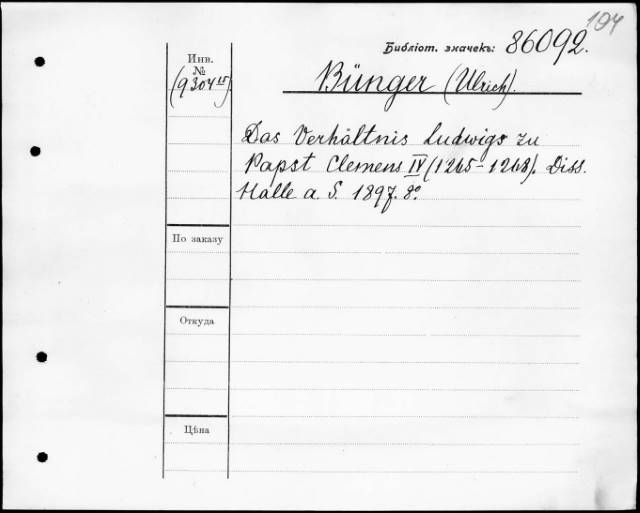 104
Библіот. значекъ: 86092.
Инв.
№
(9304¹⁵)
Bünger (Ulrich).
Das Verhältnis Ludwigs zu
Papst Clemens IV (1265-1268). Diss.
Halle a. S. 1897. 8°
По заказу
Откуда
Цѣна